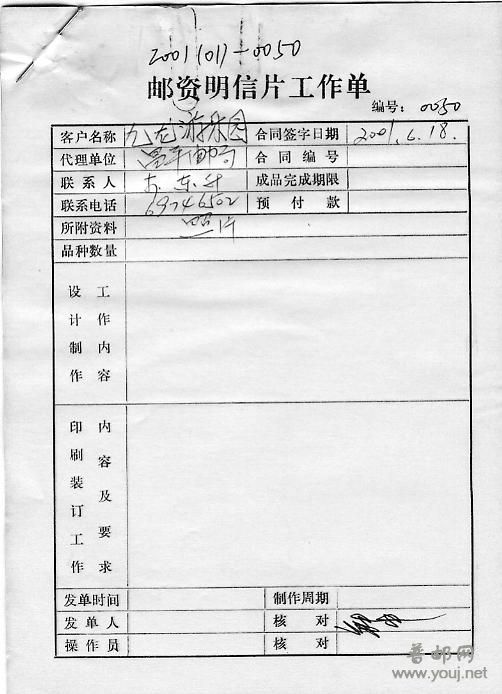 2001(01)-0050
邮资明信片工作单
编号: 0050
客户名称 九龙游乐园 合同签字日期 2001.6.18.
代理单位 昌平邮局 合同编号
联系人 成品完成期限
联系电话 69746502 预付款
所附资料 照片
品种数量
设计制作 工作内容
印刷装订工作 内容及要求
发单时间 制作周期
发单人 核对
操作员 核对
普邮网
www.youj.net